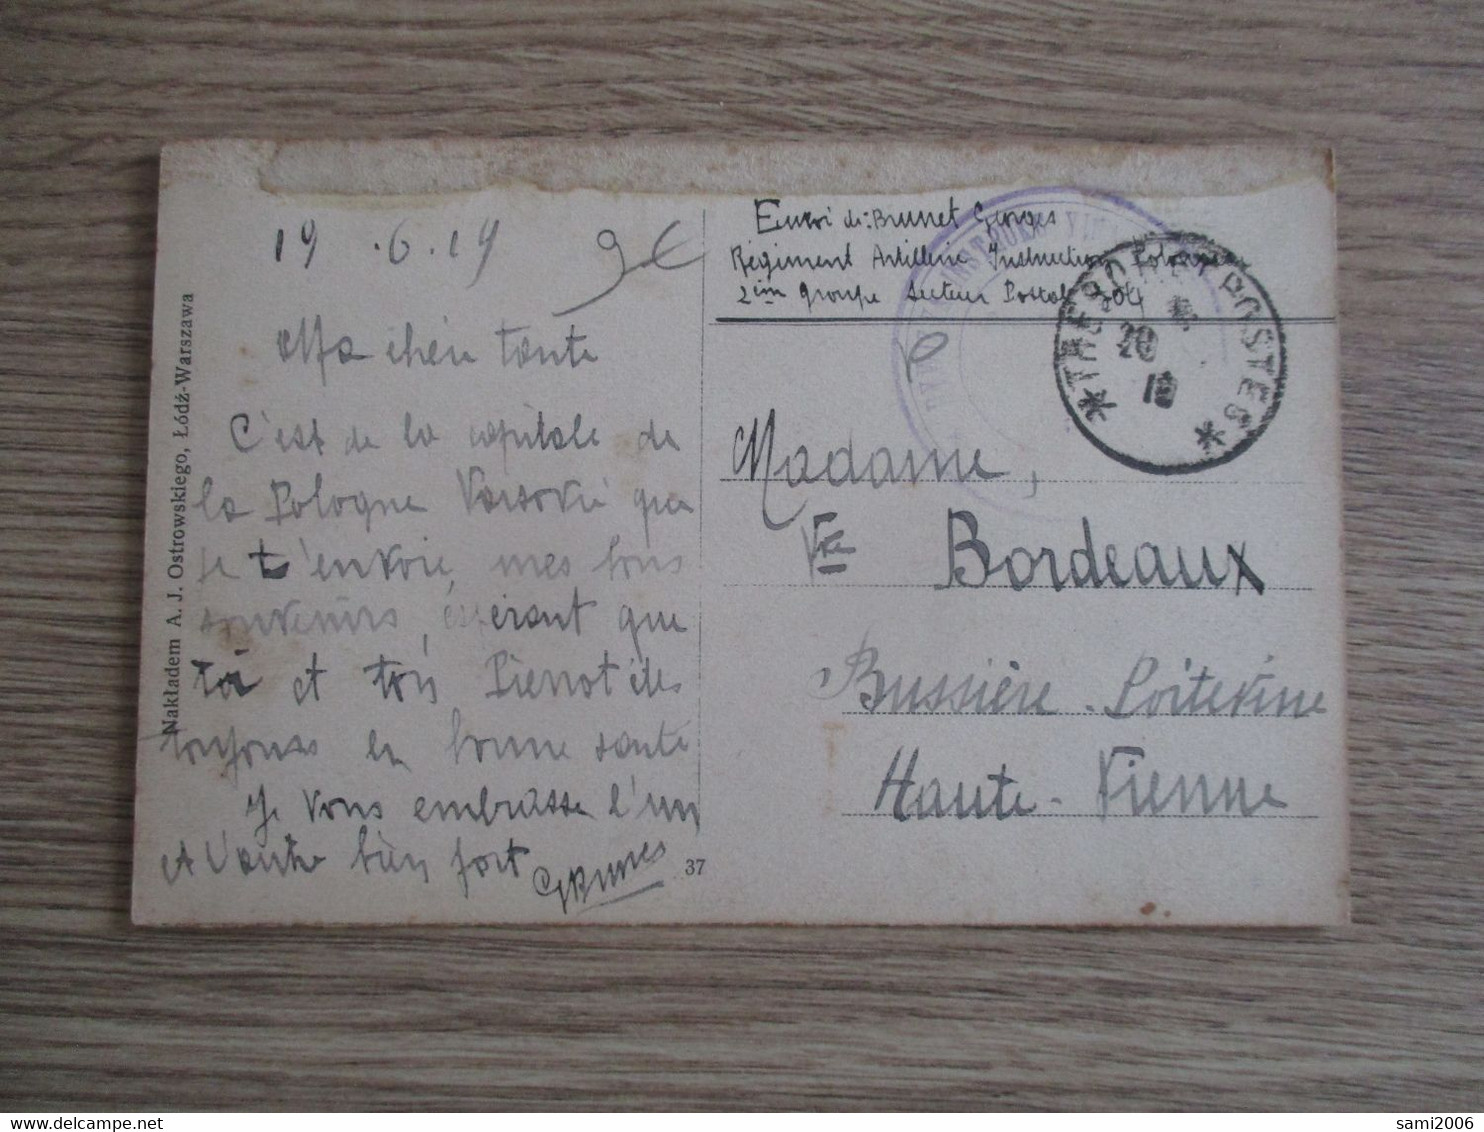 19 . 6 . 19
9 €
Ma chère tante
C'est de la capitale de
la Pologne Varsovie que
je t'envoie mes bons
souvenirs, espérant que
toi et ton Pierrot êtes
toujours en bonne santé
Je vous embrasse l'un
et l'autre bien fort
GBrunet
37
Nakładem A. J. Ostrowskiego, Łódź-Warszawa
Envoi de: Brunet Georges
Régiment Artillerie Instruction Pologne
2ème groupe Secteur Postal 204
* TRESOR ET POSTES *
20
19
Madame,
Vve Bordeaux
Bussière-Poitevine
Haute-Vienne
sami2006